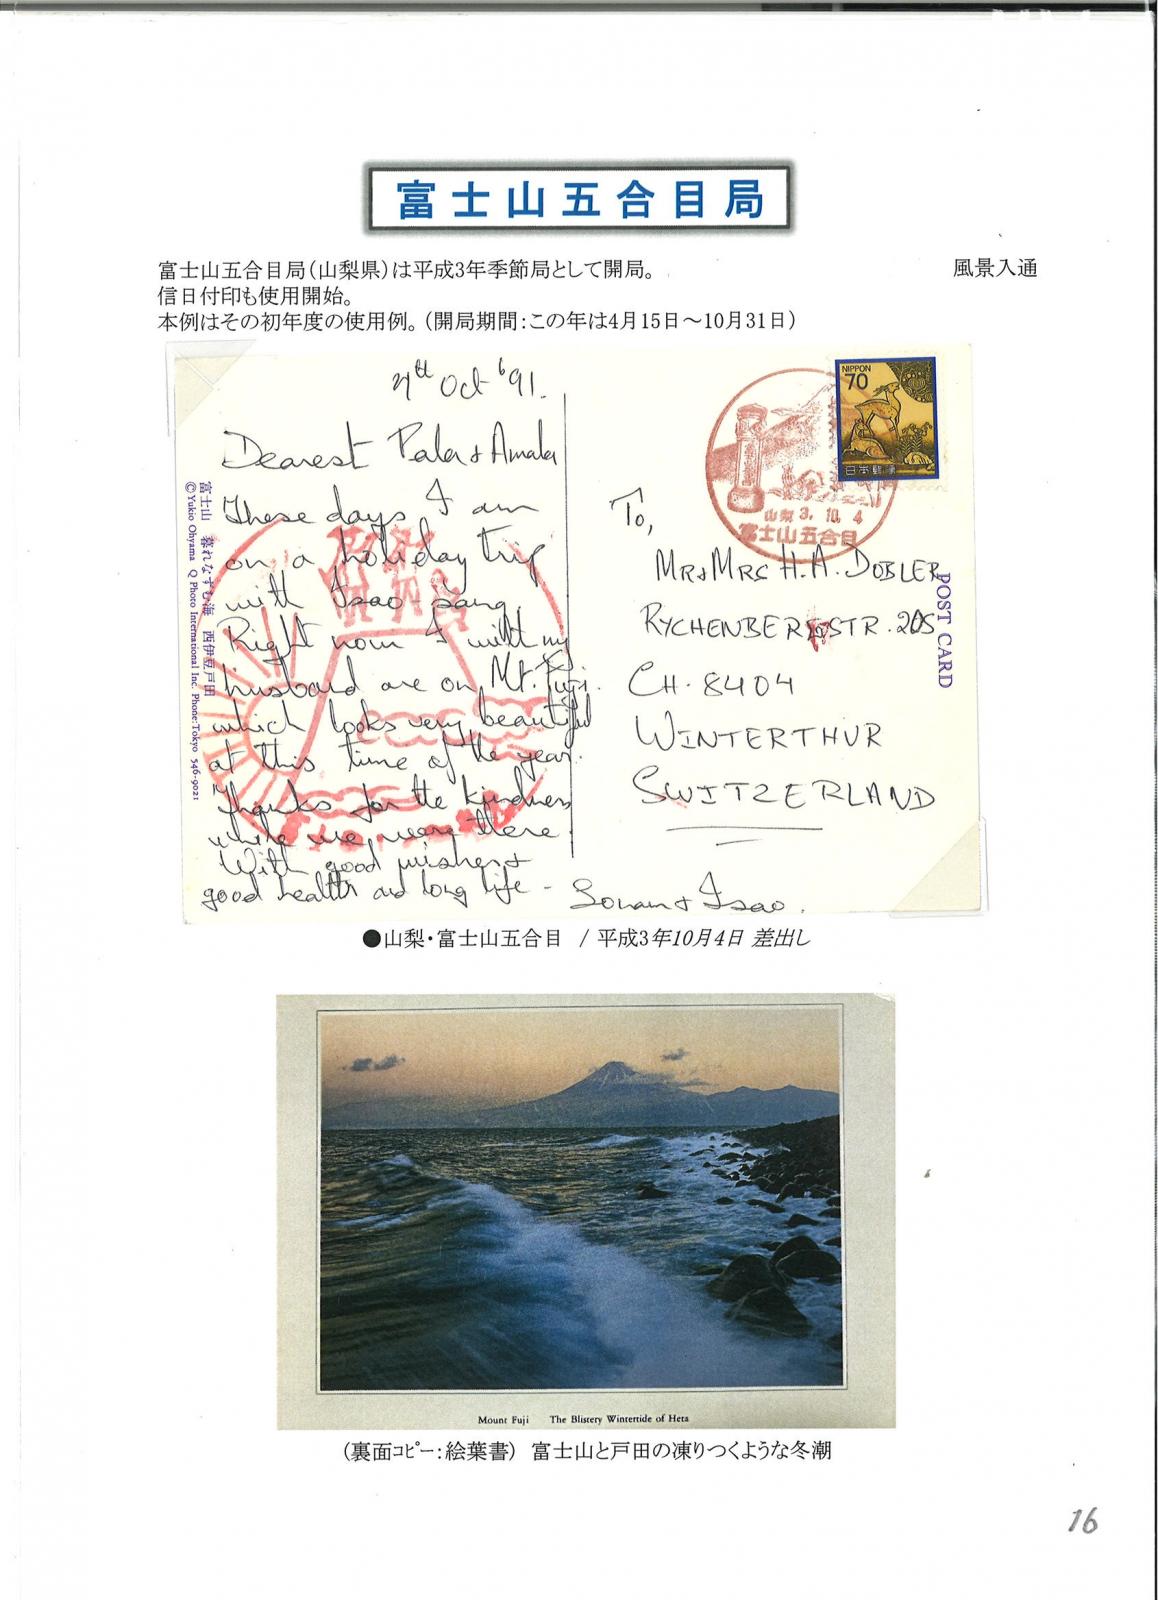 富士山五合目局
富士山五合目局(山梨県)は平成3年季節局として開局。
風景入通
信日付印も使用開始。
本例はその初年度の使用例。(開局期間:この年は4月15日~10月31日)
4th Oct '91.
Dearest Pala & Amala
These days I am
on a holiday trip
with Isao-sang.
Right now I with my
husband are on Mt. Fuji.
which looks very beautiful
at this time of the year.
Thanks for the kindness
while we were there
With good wishes &
good health and long life -
Sonam & Isao.
富士山 暮れなずむ海 西伊豆戸田
© Yukio Ohyama Q Photo International Inc. Phone: Tokyo 546-9021
NIPPON
70
日本郵便
山梨 3. 10. 4
富士山五合目
POST CARD
To,
MR & MRS H. A. DOBLER
RYCHENBERGSTR. 205
CH-8404
WINTERTHUR
SWITZERLAND
●山梨・富士山五合目 / 平成3年10月4日 差出し
Mount Fuji The Blistery Wintertide of Heta
(裏面コピー:絵葉書) 富士山と戸田の凍りつくような冬潮
16